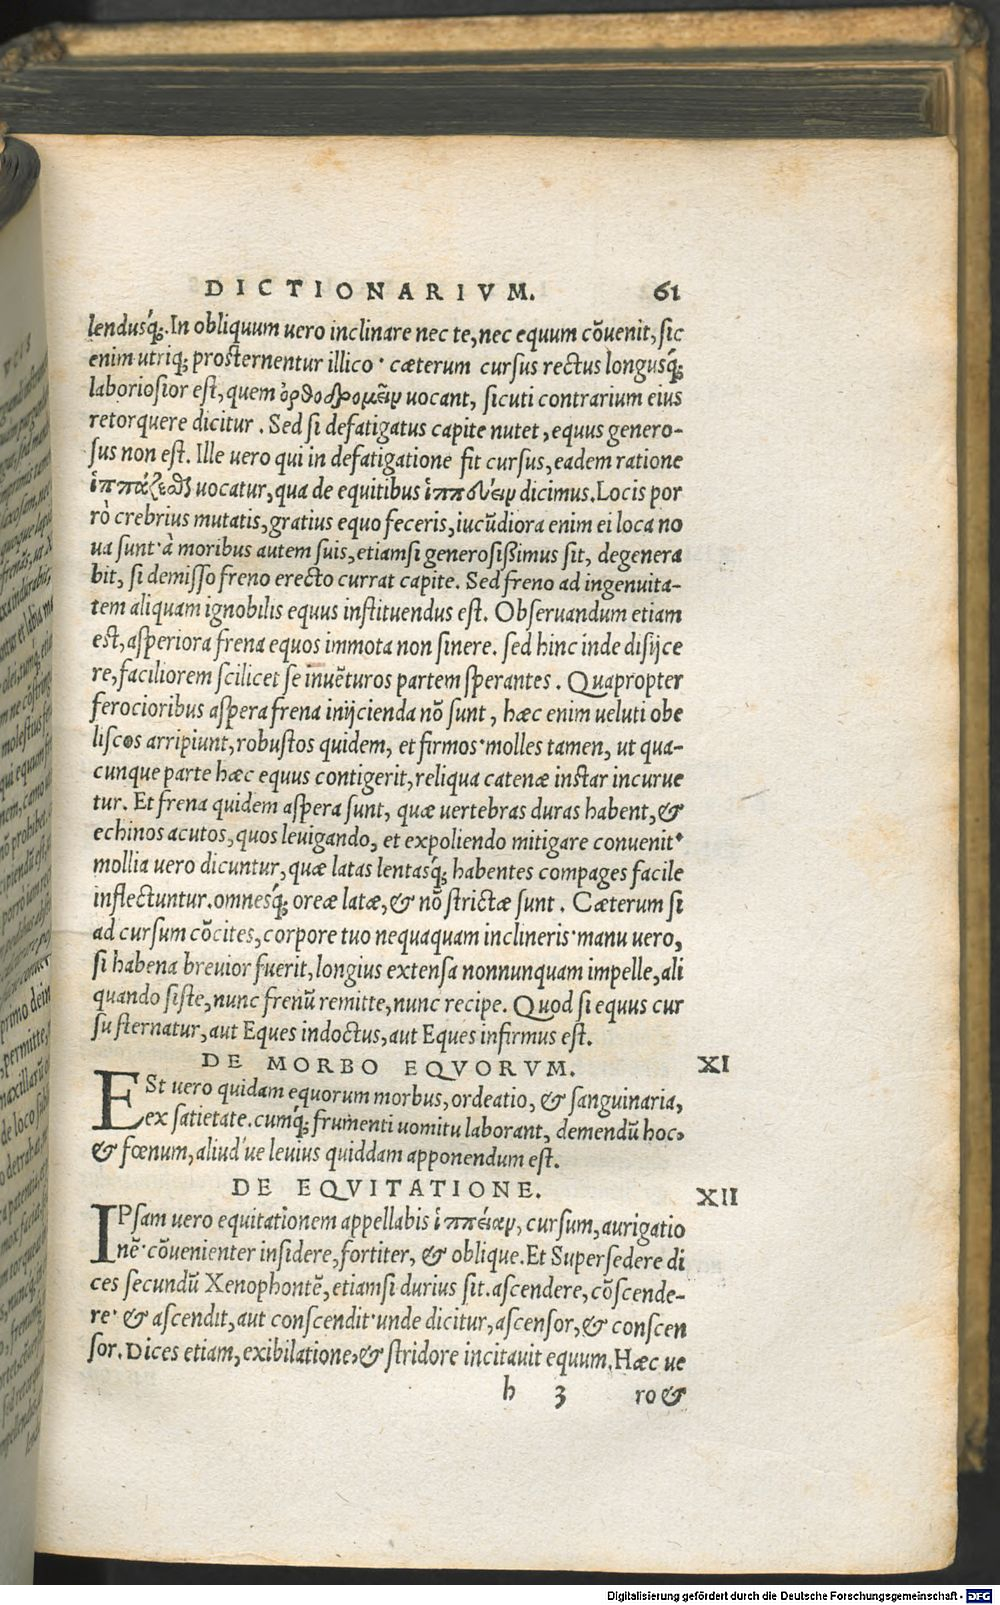 DICTIONARIVM. 61
lendusq́;. In obliquum uero inclinare nec te, nec equum cōuenit, sic
enim utriq; prosternentur illico · cæterum cursus rectus longusq́;
laboriosior est, quem ὀρθοδρομεῖν uocant, sicuti contrarium eius
retorquere dicitur . Sed si defatigatus capite nutet , equus genero-
sus non est. Ille uero qui in defatigatione fit cursus, eadem ratione
ἱππάζεσθαι uocatur, qua de equitibus dicimus. Locis por
rò crebrius mutatis, gratius equo feceris, iucūdiora enim ei loca no
ua sunt· à moribus autem suis, etiamsi generosißimus sit, degenera
bit, si demisso freno erecto currat capite. Sed freno ad ingenuita-
tem aliquam ignobilis equus instituendus est. Obseruandum etiam
est, asperiora frena equos immota non sinere. sed hinc inde disijce
re, faciliorem scilicet se inuēturos partem sperantes . Quapropter
ferocioribus aspera frena inijcienda nō sunt , hæc enim ueluti obe
liscos arripiunt, robustos quidem, et firmos· molles tamen, ut qua-
cunque parte hæc equus contigerit, reliqua catenæ instar incurue
tur. Et frena quidem aspera sunt, quæ uertebras duras habent, &
echinos acutos, quos leuigando, et expoliendo mitigare conuenit·
mollia uero dicuntur, quæ latas lentasq́; habentes compages facile
inflectuntur. omnesq́; oreæ latæ, & nō strictæ sunt . Cæterum si
ad cursum cōcites, corpore tuo nequaquam inclineris· manu uero,
si habena breuior fuerit, longius extensa nonnunquam impelle, ali
quando siste, nunc frenū remitte, nunc recipe. Quod si equus cur
su sternatur, aut Eques indoctus, aut Eques infirmus est.
DE MORBO EQVORVM. XI
ESt uero quidam equorum morbus, ordeatio, & sanguinaria,
ex satietate. cumq́; frumenti uomitu laborant, demendū hoc,
& fœnum, aliud´ue leuius quiddam apponendum est.
DE EQVITATIONE. XII
IPsam uero equitationem appellabis ἱππείαν, cursum, aurigatio
nē· cōuenienter insidere, fortiter, & oblique. Et Supersedere di
ces secundū Xenophontē, etiamsi durius sit. ascendere, cōscende-
re· & ascendit, aut conscendit· unde dicitur, ascensor, & conscen
sor. Dices etiam, exibilatione, & stridore incitauit equum. Hæc ue
h 3 ro &
Digitalisierung gefördert durch die Deutsche Forschungsgemeinschaft - DFG